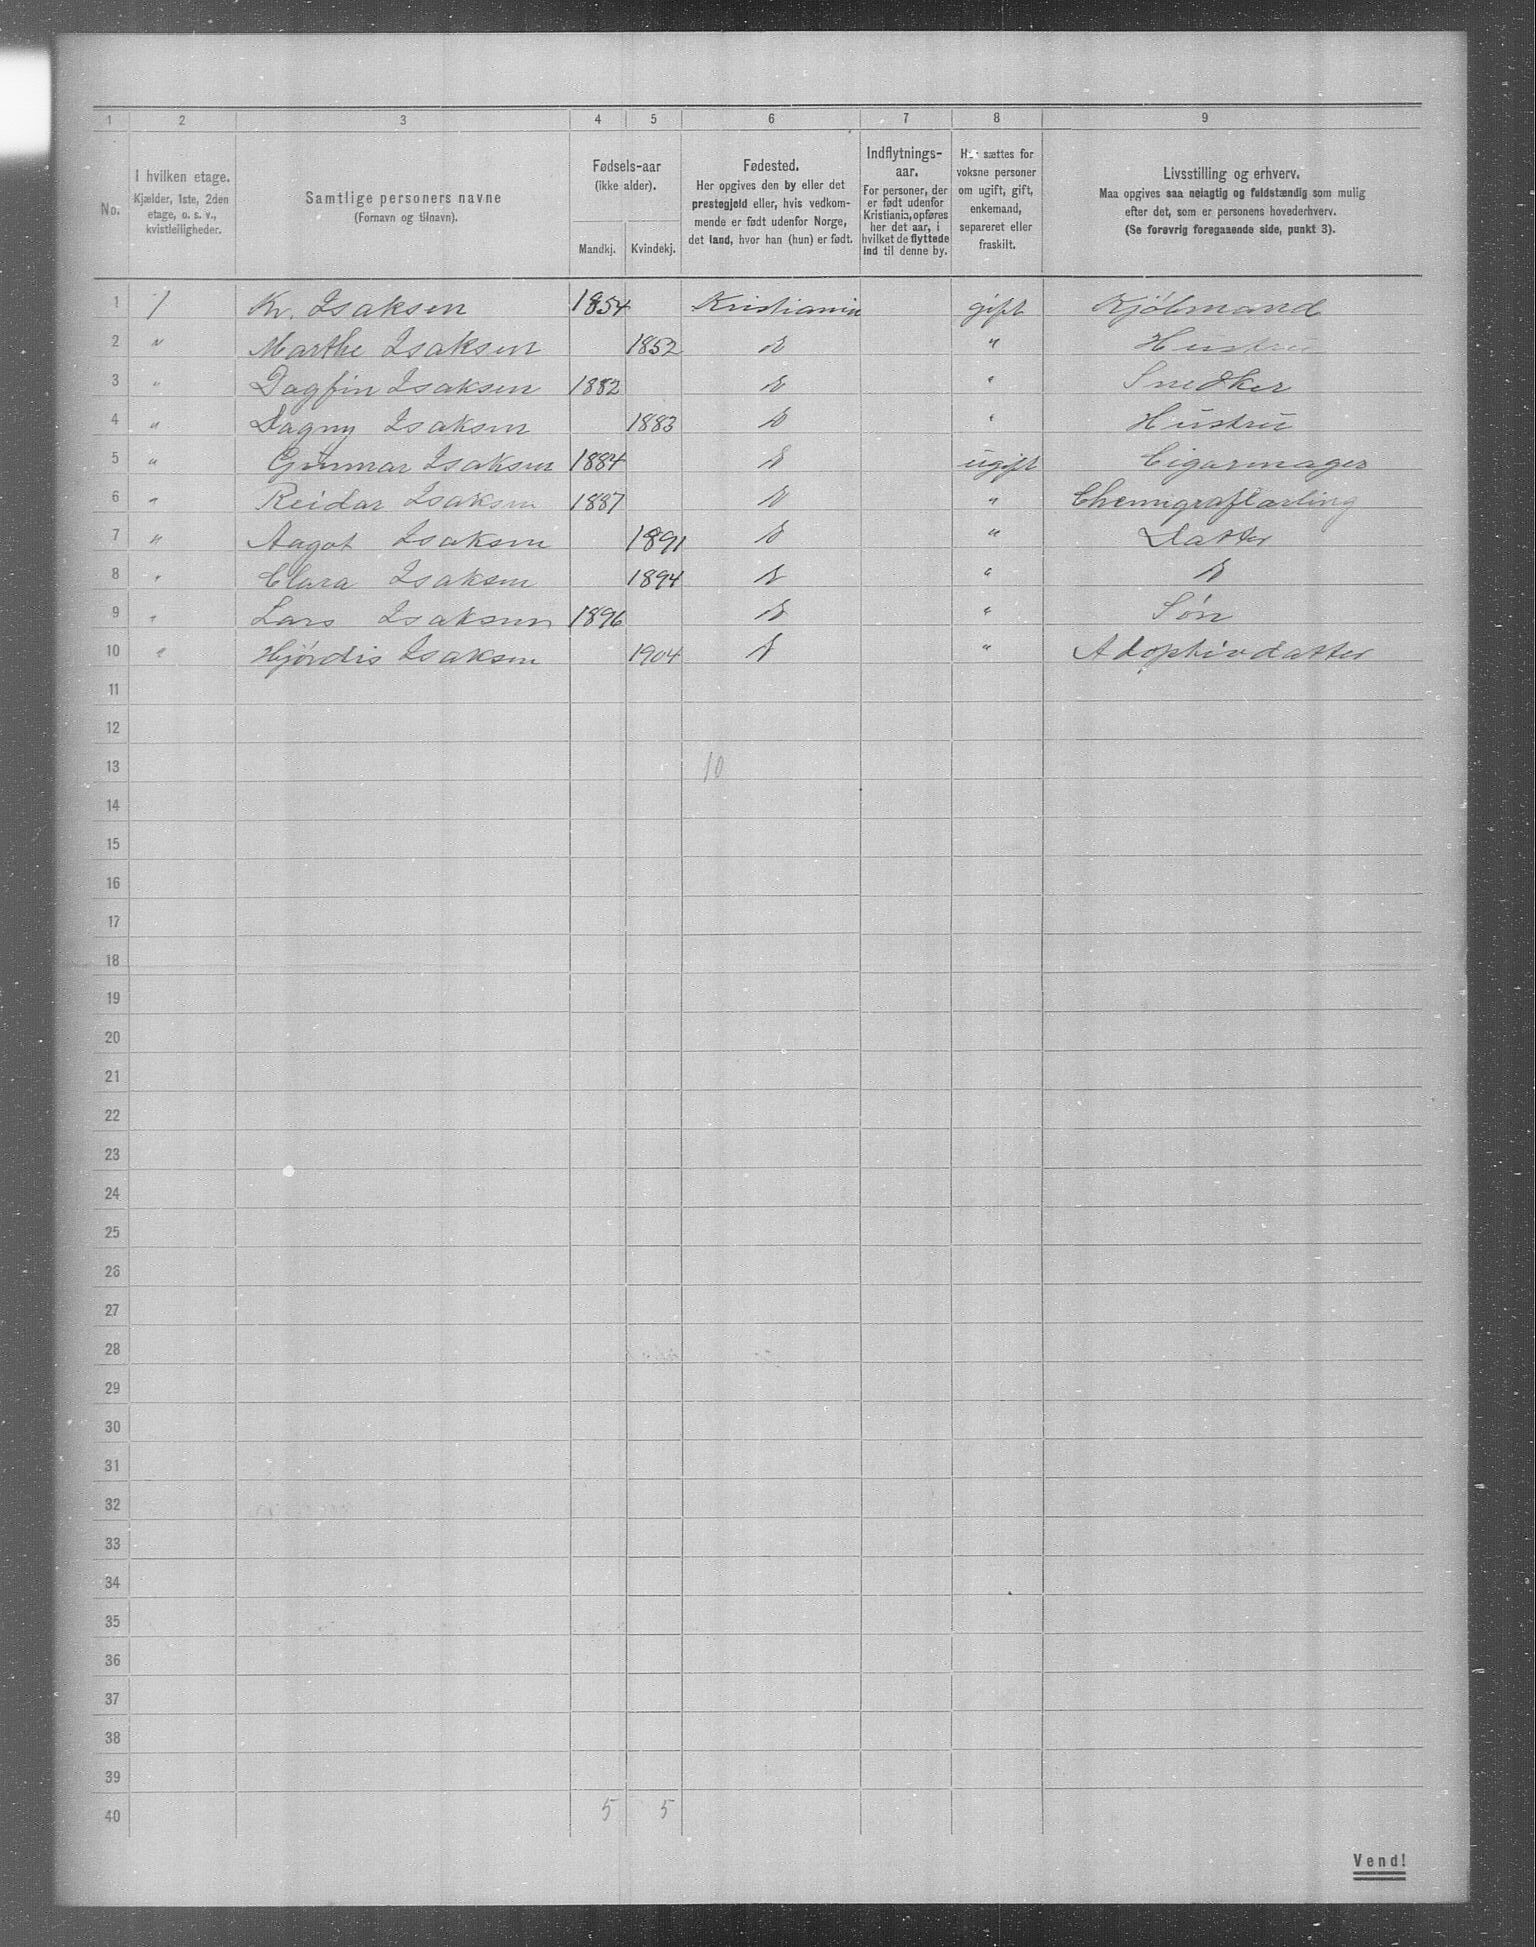 1 2 3 4 5 6 7 8 9
No.
I hvilken etage.
Kjælder, 1ste, 2den
etage, o. s. v.,
kvistleiligheder.
Samtlige personers navne
(Fornavn og tilnavn).
Fødsels-aar
(ikke alder).
Mandkj. Kvindekj.
Fødested.
Her opgives den by eller det
prestegjeld eller, hvis vedkom-
mende er født udenfor Norge,
det land, hvor han (hun) er født.
Indflytnings-
aar.
For personer, der
er født udenfor
Kristiania, opføres
her det aar, i
hvilket de flyttede
ind til denne by.
Her sættes for
voksne personer
om ugift, gift,
enkemand,
separeret eller
fraskilt.
Livsstilling og erhverv.
Maa opgives saa nøiagtig og fuldstændig som mulig
efter det, som er personens hovederhverv.
(Se forøvrig foregaaende side, punkt 3).
1 1 Kr. Isaksen 1854 Kristiania gift Kjøbmand
2 " Marthe Isaksen 1852 " Hustru
3 " Dagfin Isaksen 1882 " Snedker
4 " Dagny Isaksen 1883 " Hustru
5 " Gunnar Isaksen 1884 ugift Cigarmager
6 " Reidar Isaksen 1887 " Chemigraflærling
7 " Aagot Isaksen 1891 " Datter
8 " Clara Isaksen 1894 "
9 " Lars Isaksen 1896 " Søn
10 " Hjørdis Isaksen 1904 " Adoptivdatter
11
12
13 10
14
15
16
17
18
19
20
21
22
23
24
25
26
27
28
29
30
31
32
33
34
35
36
37
38
39
40 5 5
Vend!